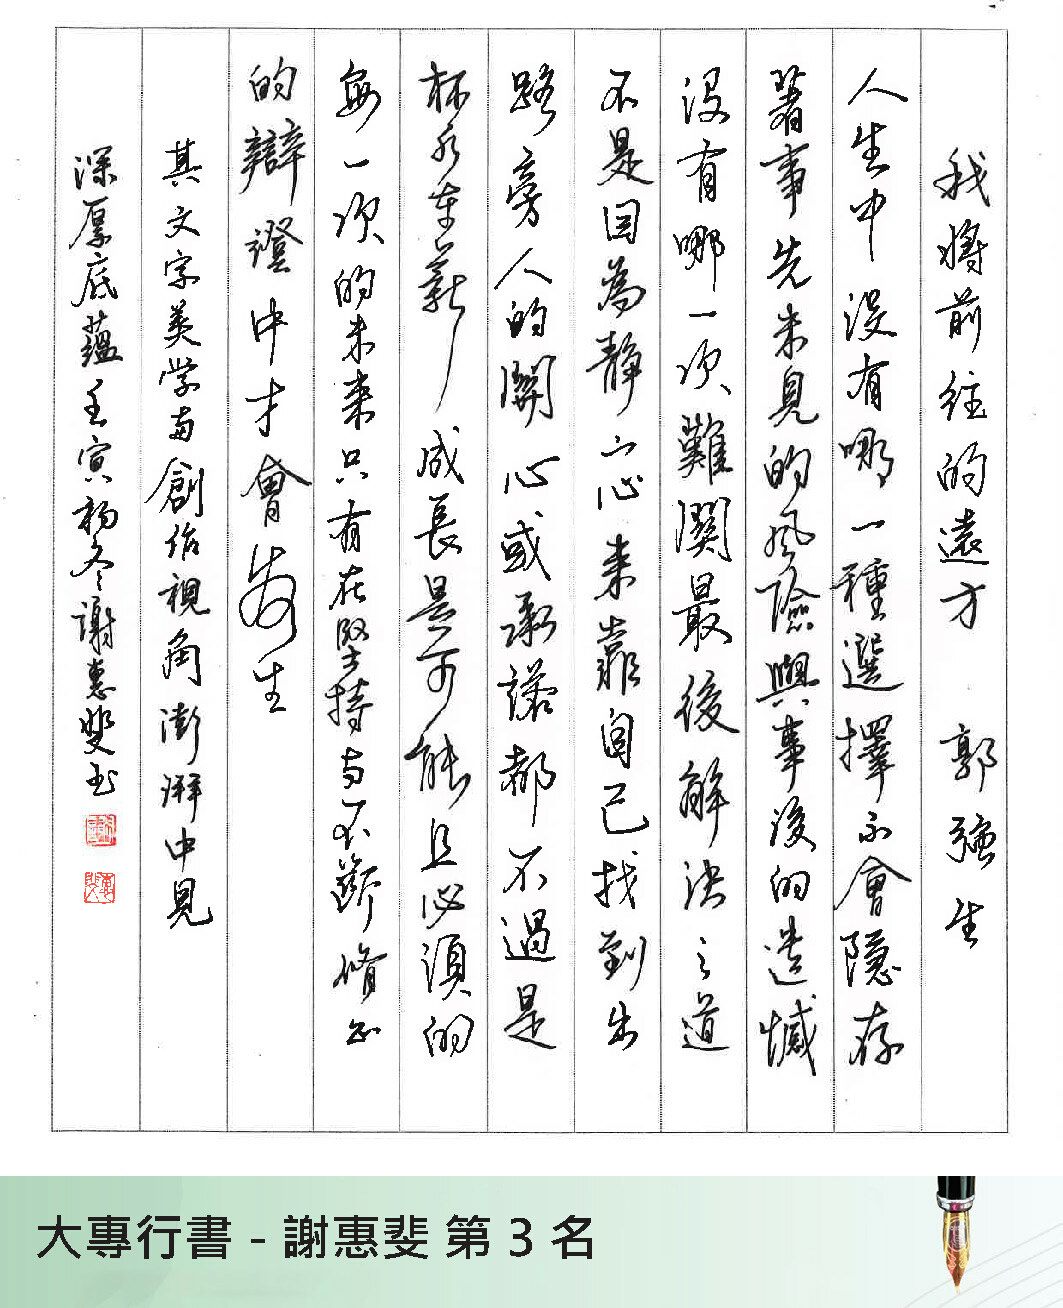 我將前往的遠方 郭強生
人生中沒有哪一種選擇不會隱存
著事先未見的風險與事後的遺憾
沒有哪一項難關最後解決之道
不是因為靜下心來靠自己找到出
路旁人的關心或承諾都不過是
杯水車薪 成長是可能且必須的
每一次的未來只有在堅持与不斷修正
的辯證中才會發生
其文字美学与創作視角澎湃中見
深厚底蘊壬寅初冬謝惠斐书
大專行書 - 謝惠斐 第 3 名